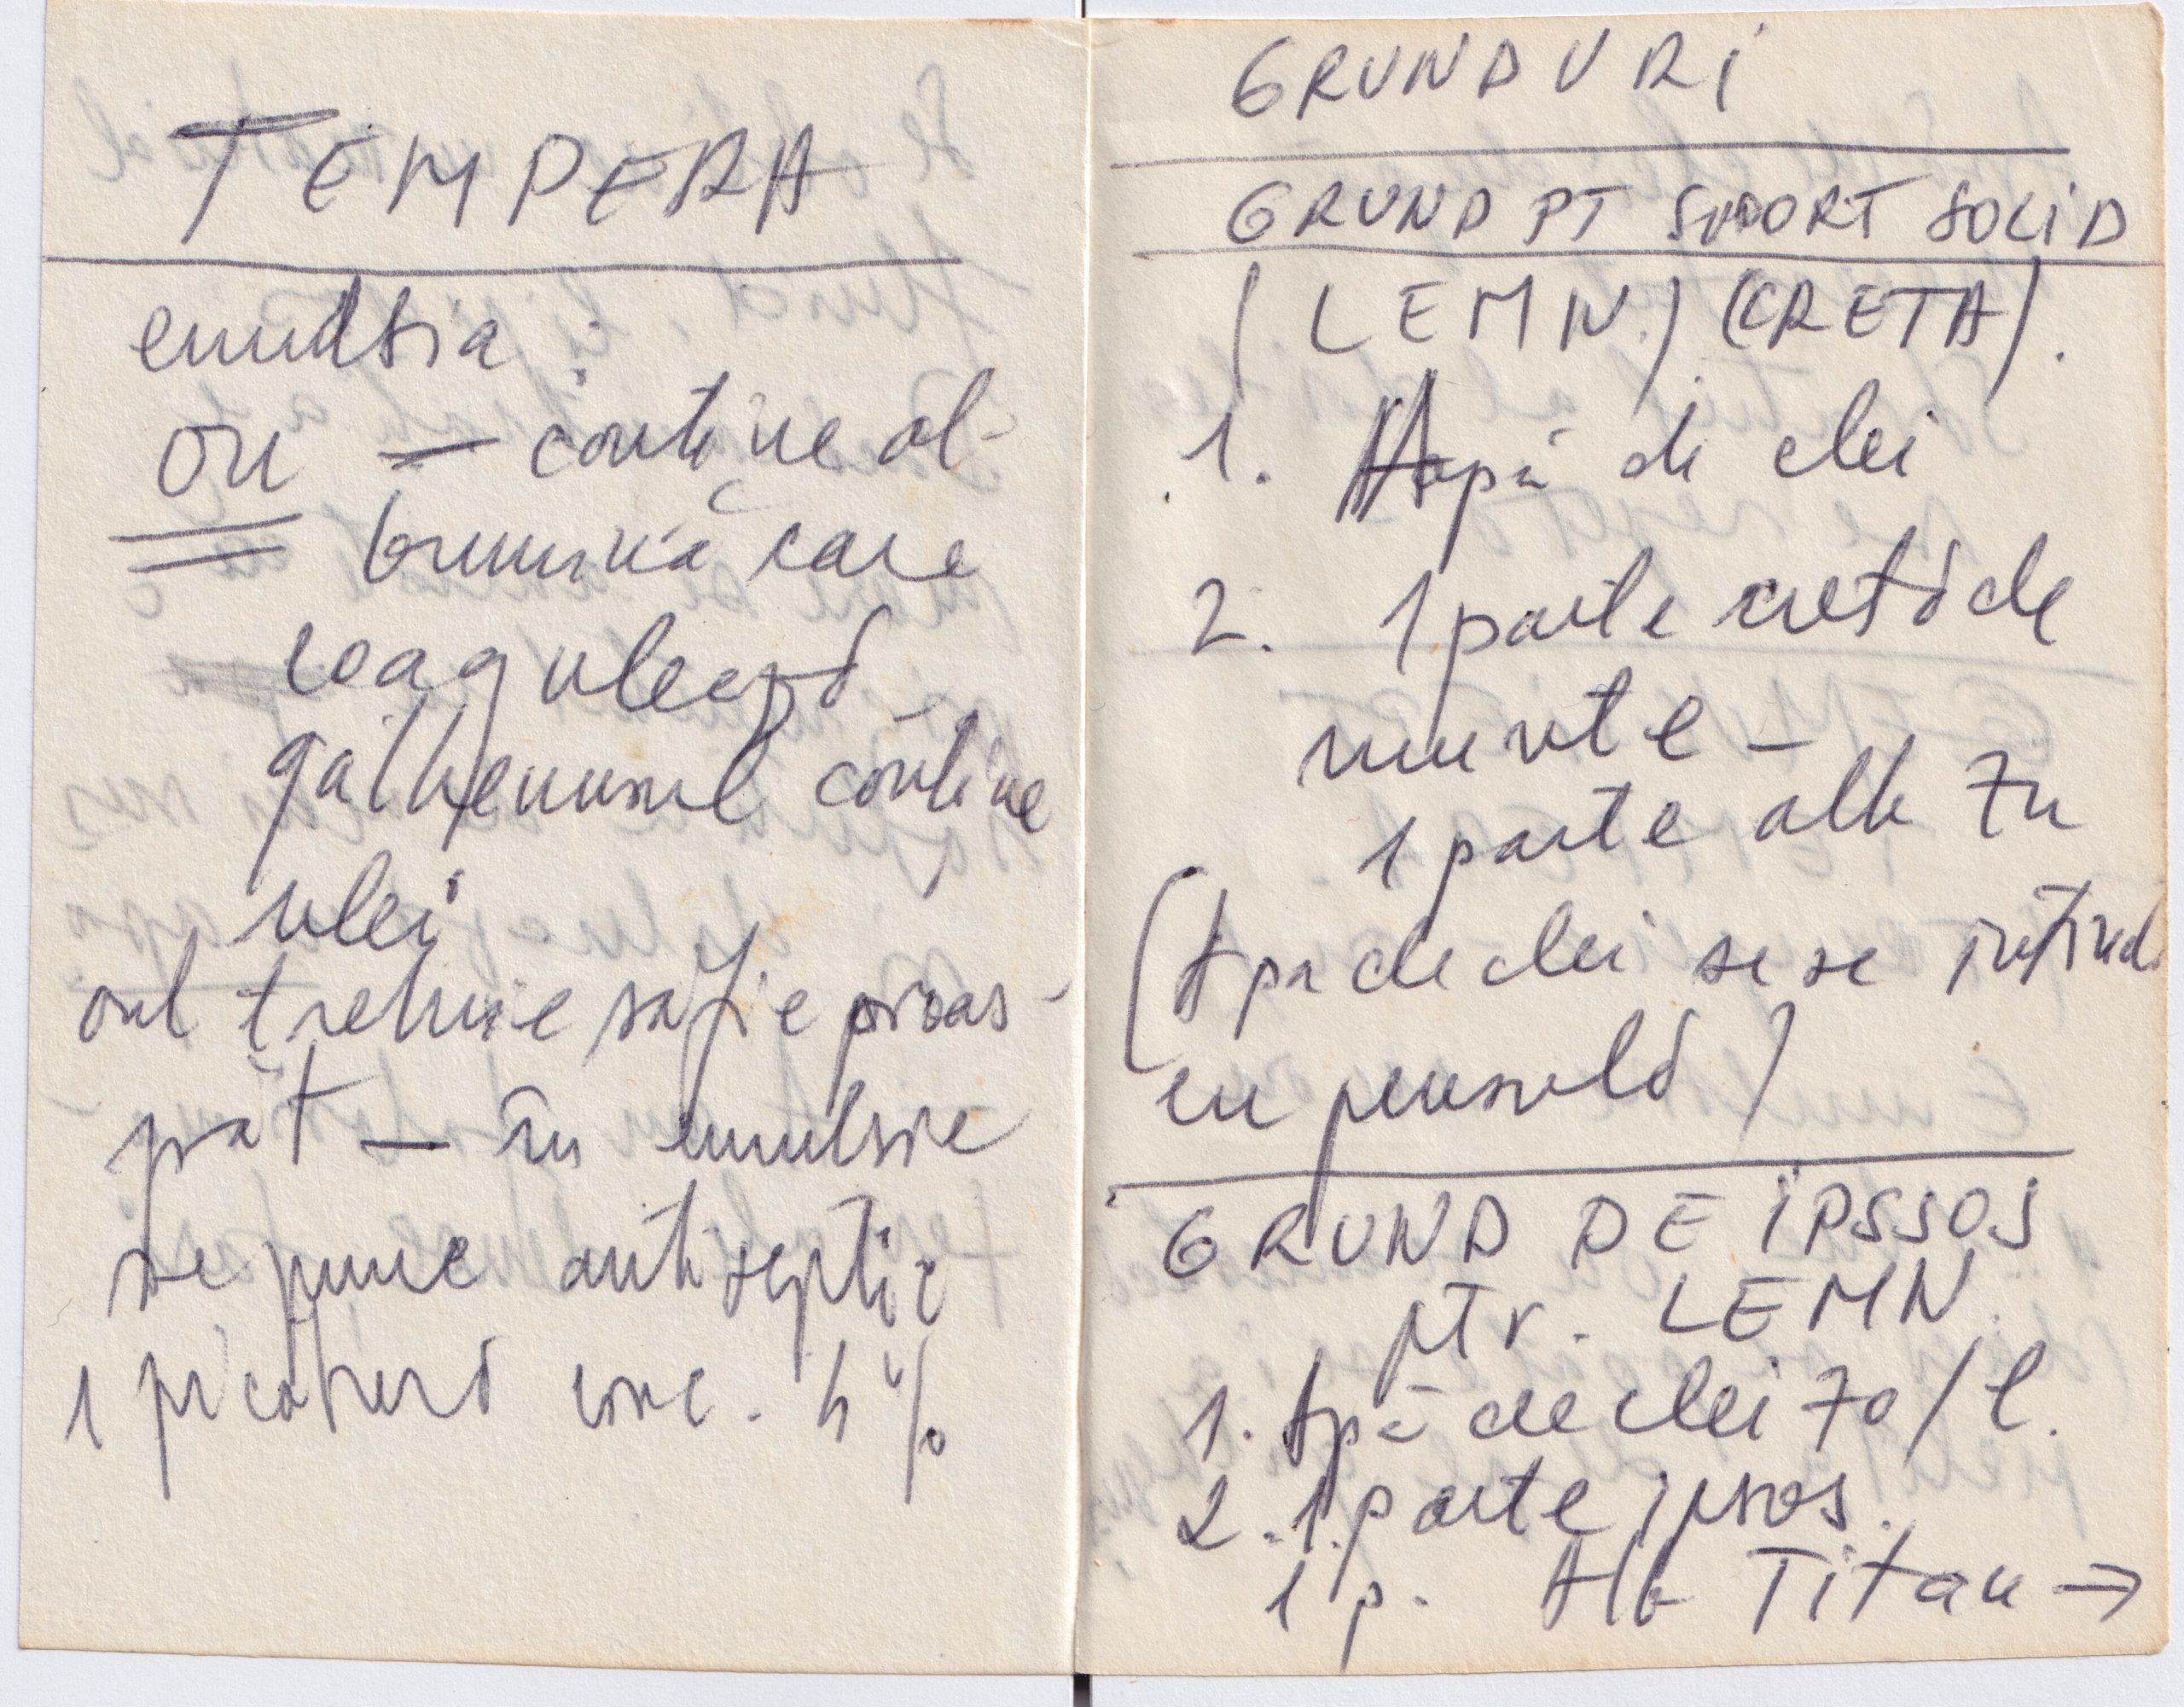 TEMPERA
emulsia:
ou — conține al-
bumină care
coagulează
gălbenușul conține
ulei
oul trebuie să fie proas-
păt — în emulsie
se pune antiseptic
1 picătură conc. %
GRUNDURI
GRUND PT SUPORT SOLID
(LEMN) (CRETA).
1. Apă de clei
2. 1 parte cretă de
munte –
1 parte alb Zn
(Apa de clei se se întind
cu pensulă)
GRUND DE IPSSOS
ptr. LEMN.
1. Apă de clei 70/l.
2. 1 parte ipsos.
1 p. Alb Titan →